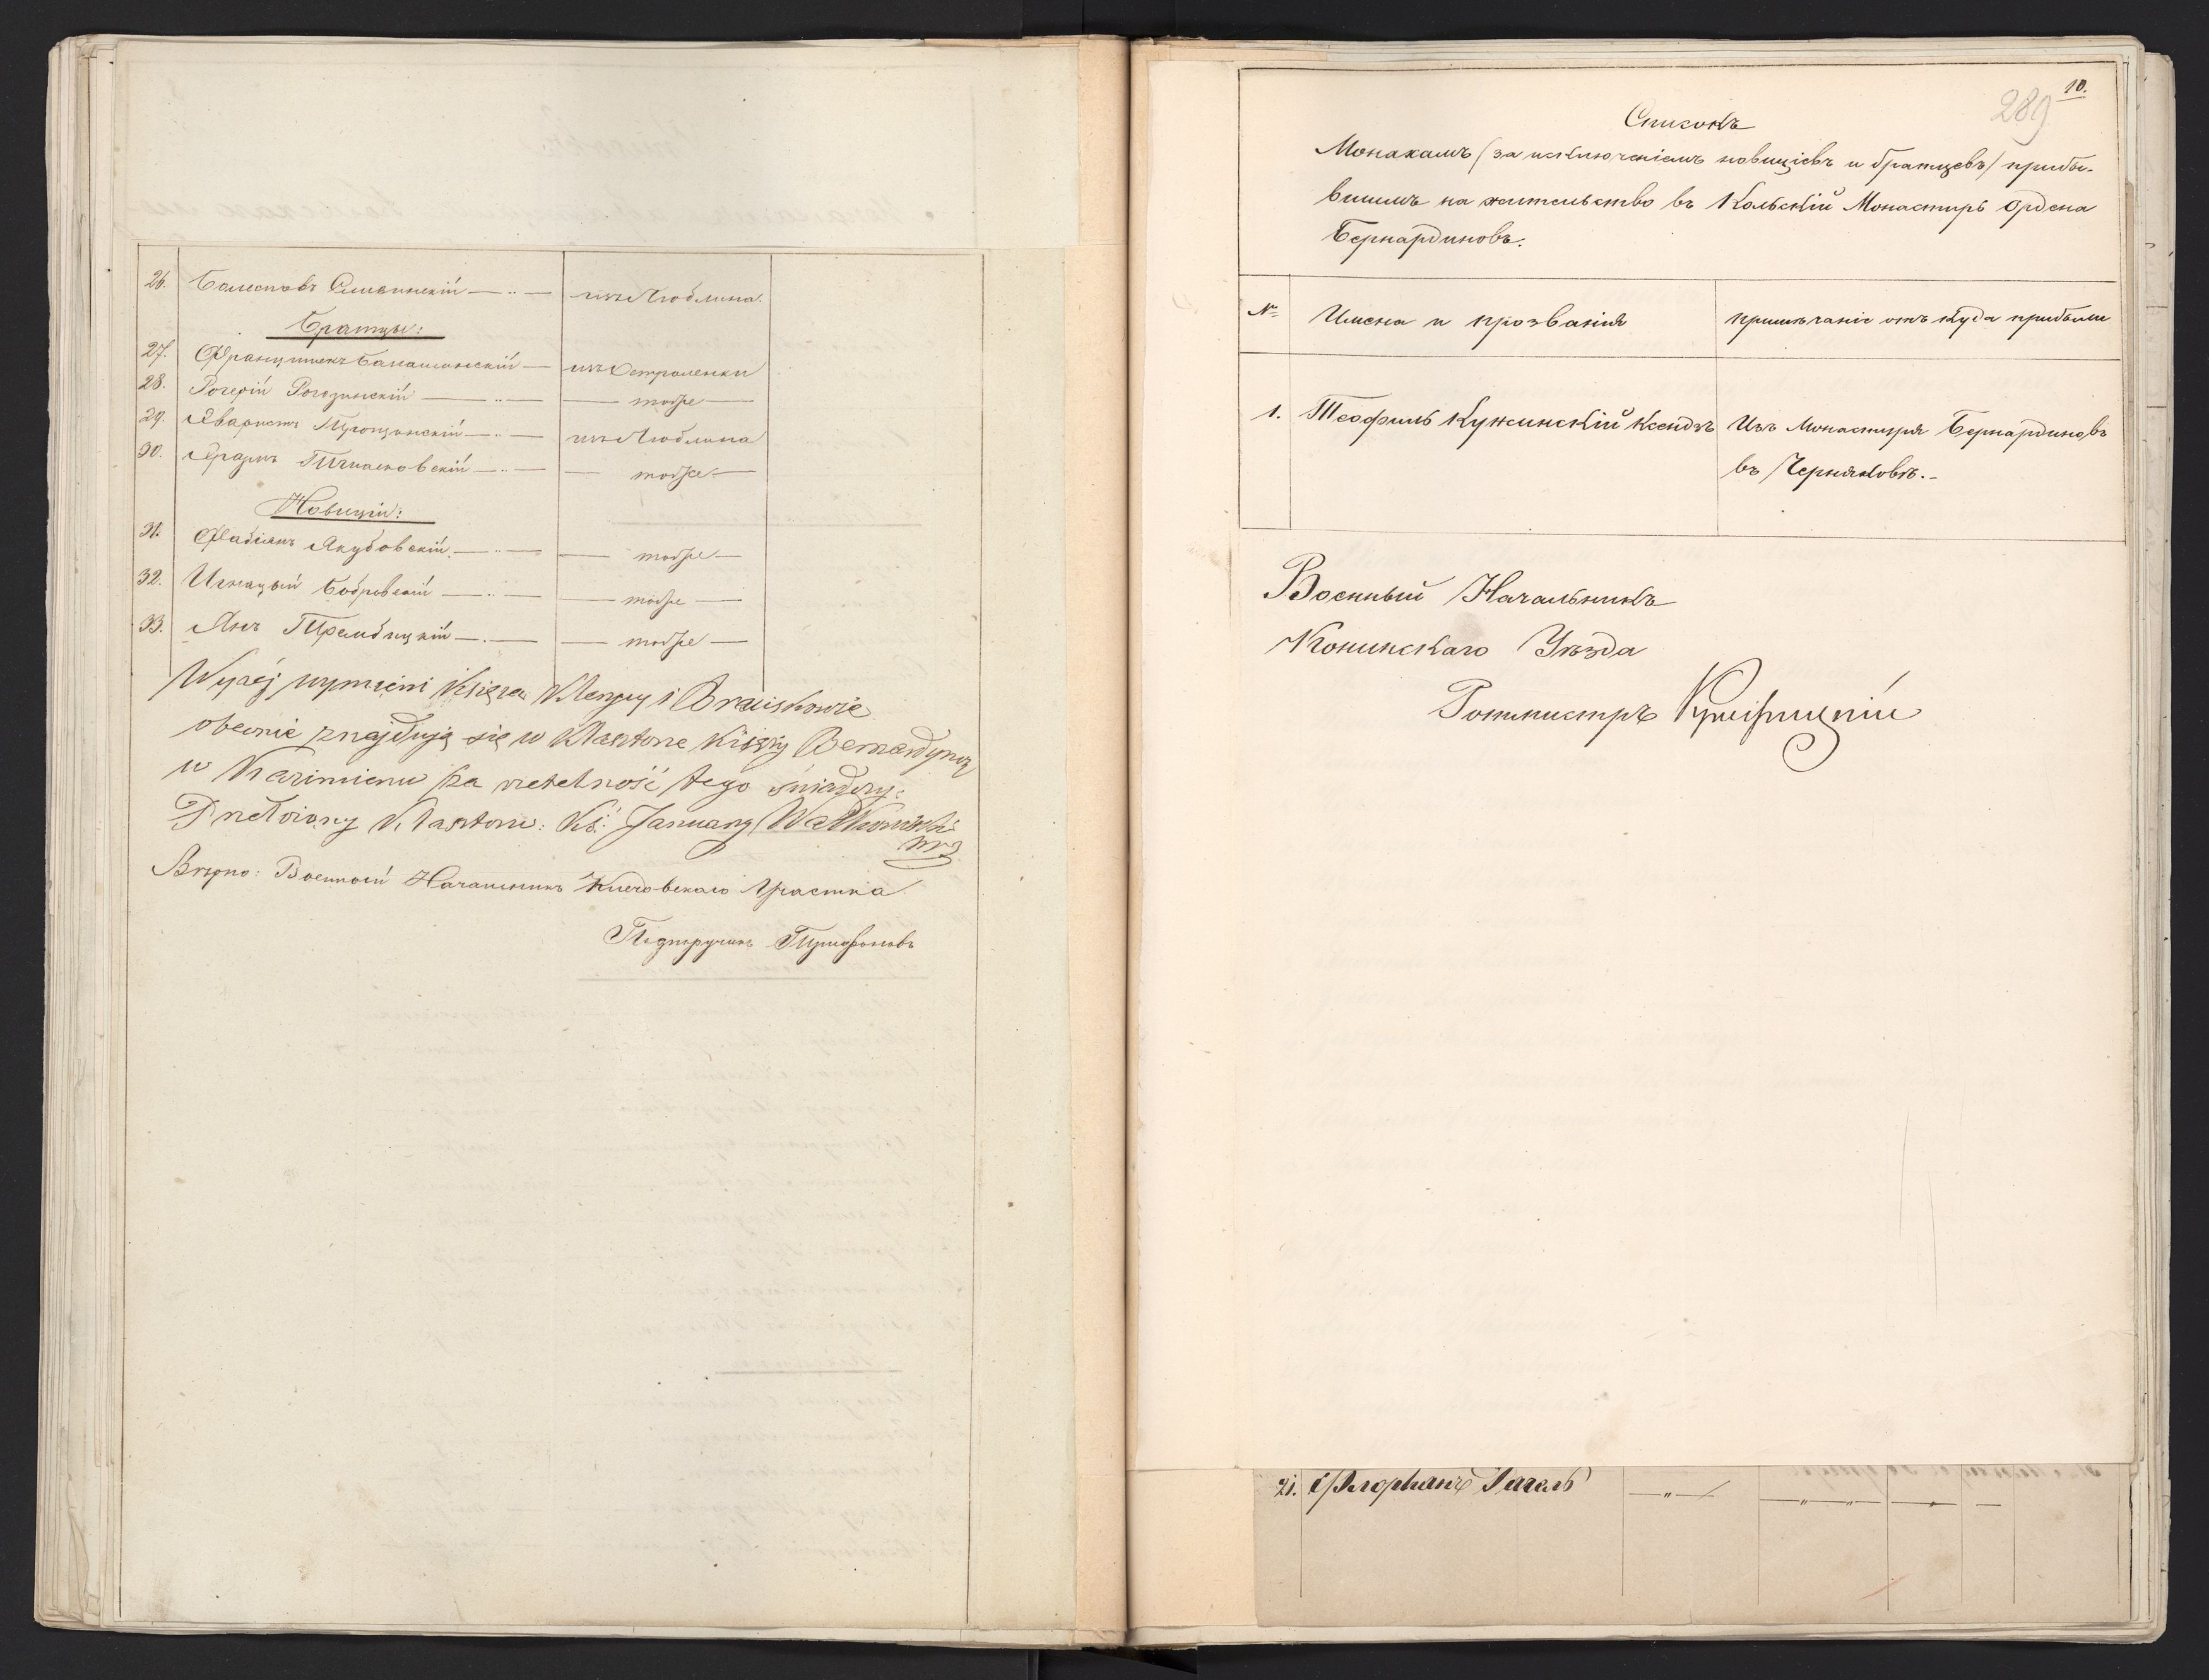 26. Болеславъ Сливинскій — „ — изъ Люблина.
Братцы:
27. Францишекъ — изъ Остроленки
28. Рогерій Рогозинскій — „ — — тоже —
29. Эваристъ — „ — изъ Люблина
30. Эразмъ — „ — — тоже —
Новиціи:
31. Фабіанъ Якубовскій. — „ — — тоже —
32. Игнацый Бобровскій — „ — — тоже —
33. Янъ Трембицкій — „ — — тоже —
Wyżej wymieni Księża Klerycy i Braciszkowie
obecnie znajdują się w Klasztorze Księży Bernardynów
w Kazimierzu za rzetelność tego świadczy:
Przełożony Klasztoru: Ks: January
Вѣрно: Военный Начальникъ Участка
Подпоручикъ
10.
289
Списокъ
Монахамъ (за исключеніемъ новиціевъ и братцевъ) прибы-
вшимъ на жительство въ Кольскій Монастырь Ордена
Бернардиновъ.
№ Имена и прозванія примѣчаніе отъ куда прибыли
1. Теофиль Кужинскій Ксендзъ Изъ Монастыря Бернардиновъ
въ Черняковѣ. -
Военный Начальникъ
Конинскаго Уѣзда
Ротмистръ
21. Флоріанъ — „ — — „ — „ — — „ — —